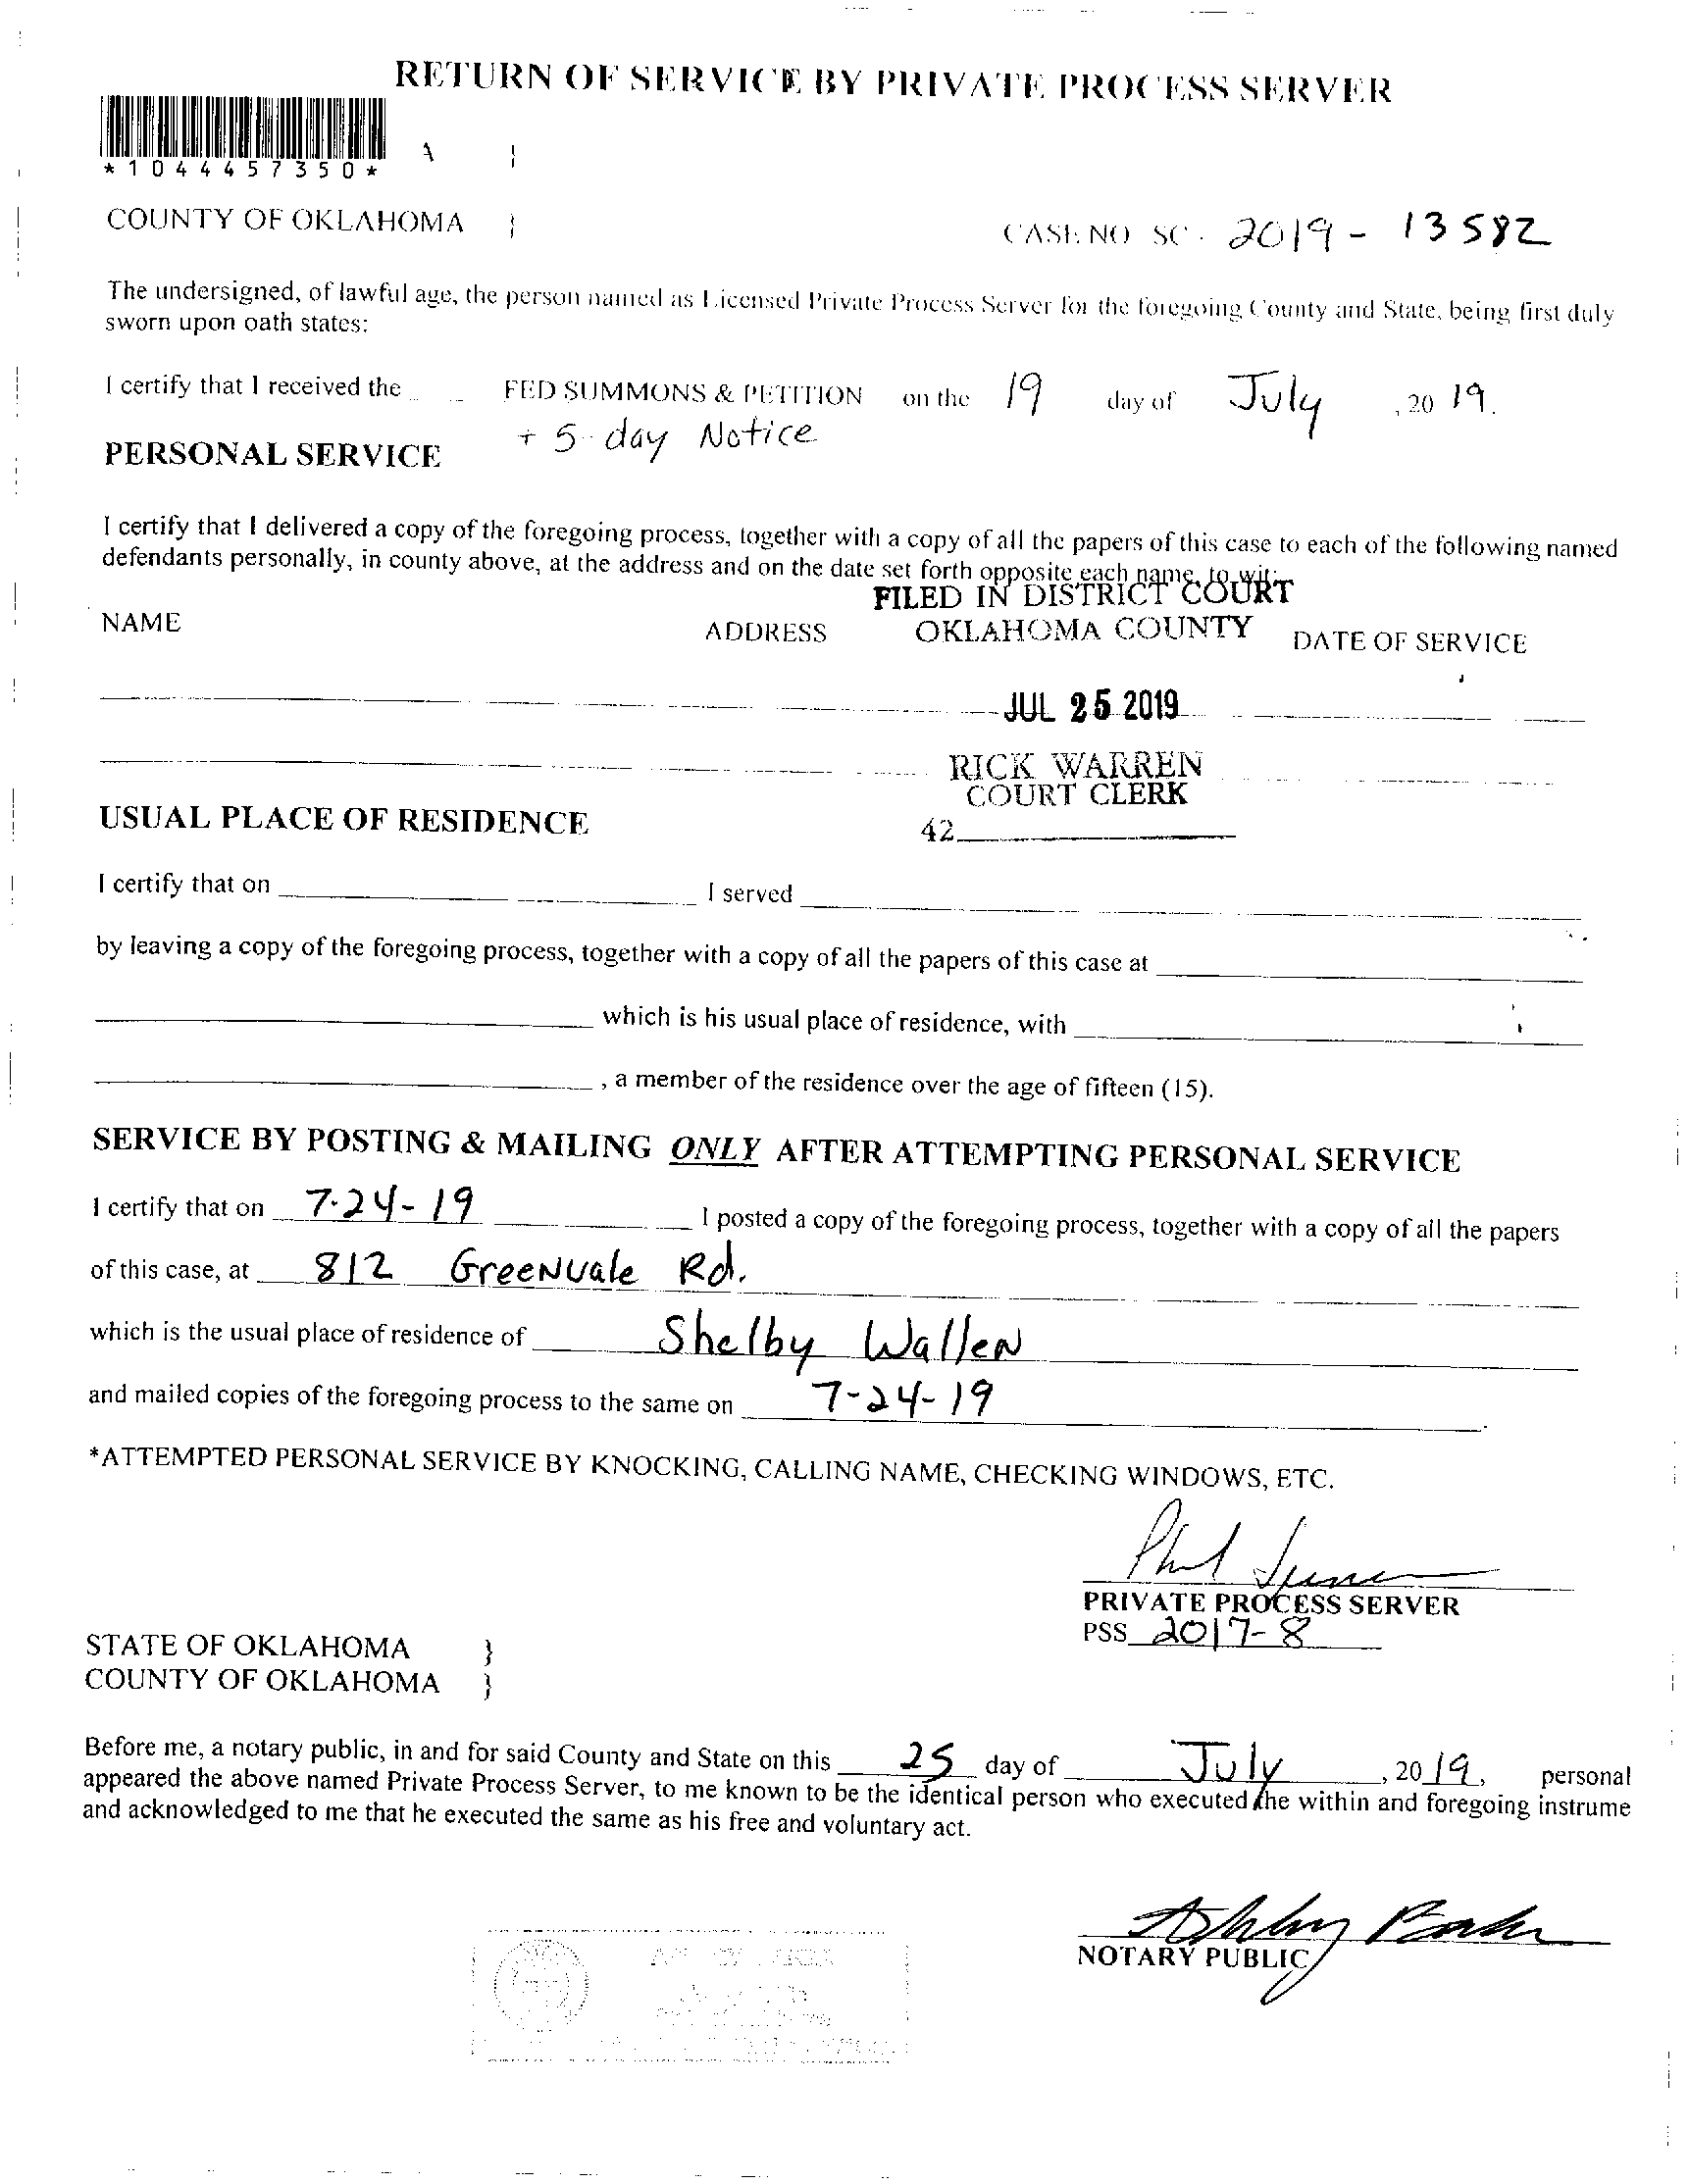 RETURN OF SERVICE BY PRIVATE PROCESS SERVER
*1044457350*
COUNTY OF OKLAHOMA }
CASE NO SC - 2019 - 13582
The undersigned, of lawful age, the person named as Licensed Private Process Server for the foregoing County and State, being first duly
sworn upon oath states:
I certify that I received the FED SUMMONS & PETITION on the 19 day of July , 20 19.
+ 5-day Notice
PERSONAL SERVICE
I certify that I delivered a copy of the foregoing process, together with a copy of all the papers of this case to each of the following named
defendants personally, in county above, at the address and on the date set forth opposite each name, to wit:
FILED IN DISTRICT COURT
OKLAHOMA COUNTY
NAME ADDRESS DATE OF SERVICE
JUL 25 2019
RICK WARREN
COURT CLERK
42
USUAL PLACE OF RESIDENCE
I certify that on I served
by leaving a copy of the foregoing process, together with a copy of all the papers of this case at
which is his usual place of residence, with
, a member of the residence over the age of fifteen (15).
SERVICE BY POSTING & MAILING ONLY AFTER ATTEMPTING PERSONAL SERVICE
I certify that on 7-24-19 I posted a copy of the foregoing process, together with a copy of all the papers
of this case, at 812 Greenvale Rd.
which is the usual place of residence of Shelby Wallen
and mailed copies of the foregoing process to the same on 7-24-19
*ATTEMPTED PERSONAL SERVICE BY KNOCKING, CALLING NAME, CHECKING WINDOWS, ETC.
PRIVATE PROCESS SERVER
PSS 2017-8
STATE OF OKLAHOMA }
COUNTY OF OKLAHOMA }
Before me, a notary public, in and for said County and State on this 25 day of July , 20 19, personal
appeared the above named Private Process Server, to me known to be the identical person who executed the within and foregoing instrume
and acknowledged to me that he executed the same as his free and voluntary act.
NOTARY PUBLIC